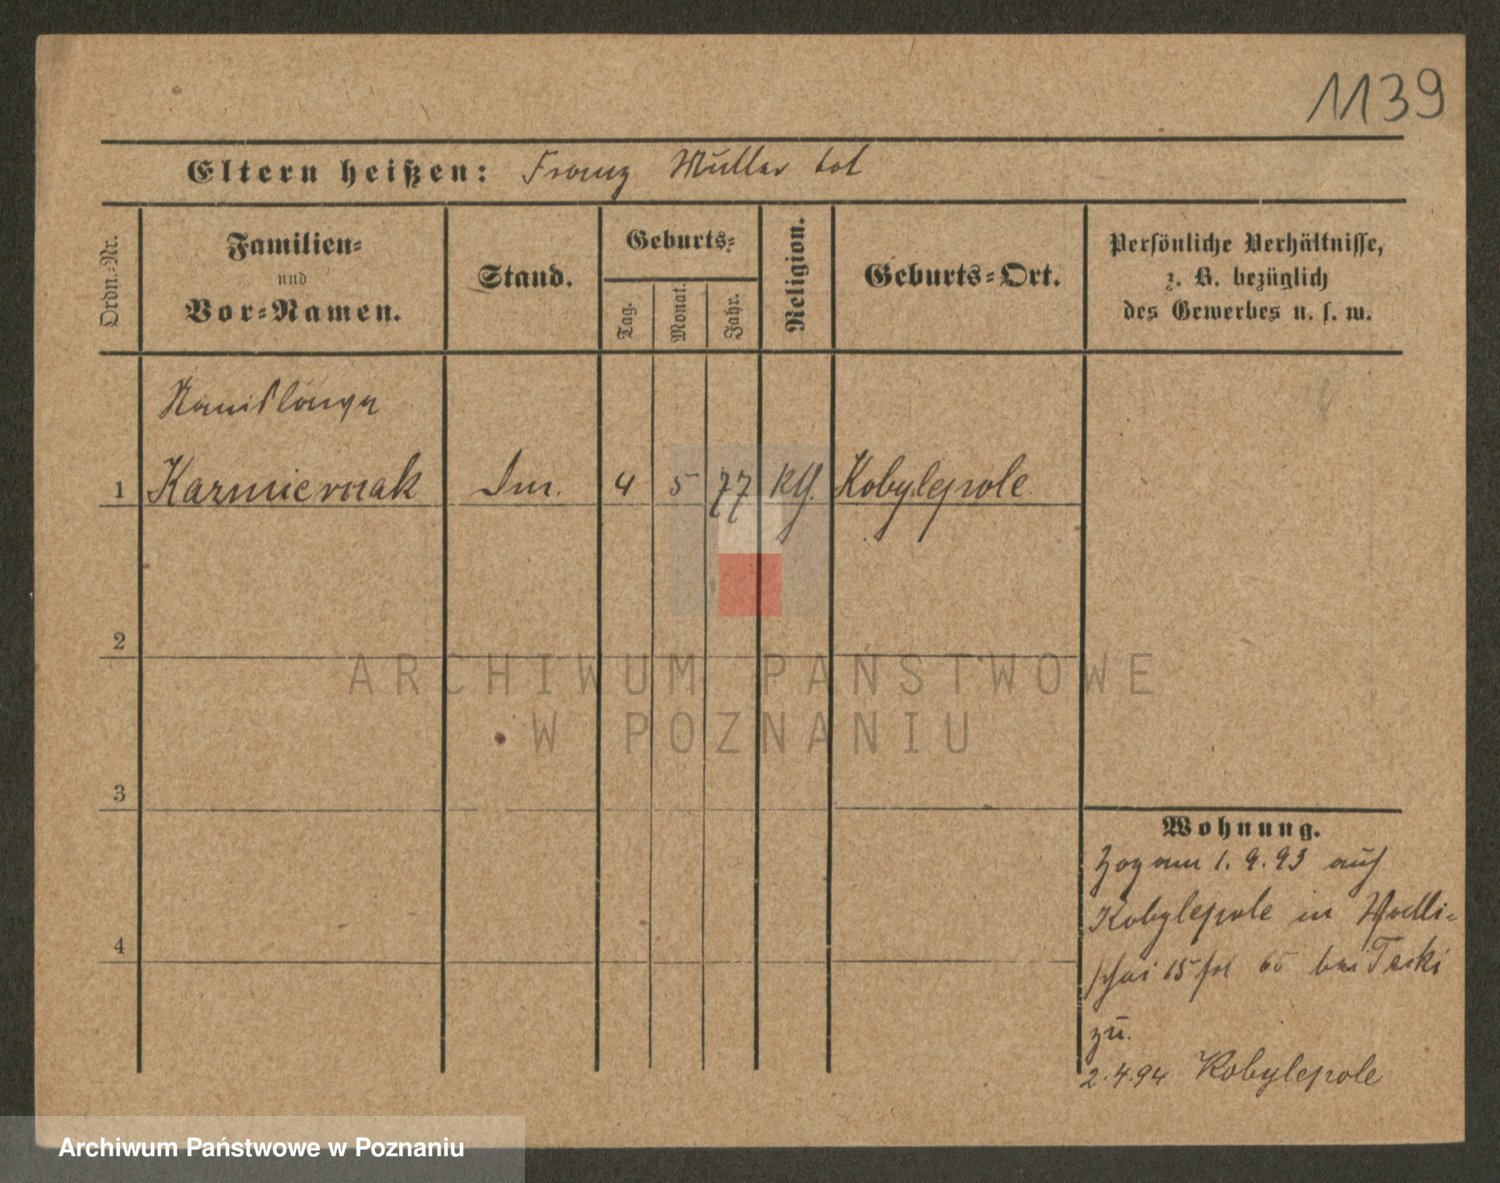 1139
Eltern heißen: Franz Muller tot
Ordn.-Nr.
Familien-
und
Vor-Namen.
Stand.
Geburts-
Tag.
Monat.
Jahr.
Religion.
Geburts-Ort.
Persönliche Verhältnisse,
z. B. bezüglich
des Gewerbes u. s. w.
1 Kazmierczak 4 5 77 Kth. Kobylepole
2
3
4
Wohnung.
Zog am 1.9.93 auf
Kobylepole in Wodli-
15 65 bei Teski
zu.
2.4.94 Kobylepole
ARCHIWUM PAŃSTWOWE
W POZNANIU
Archiwum Państwowe w Poznaniu